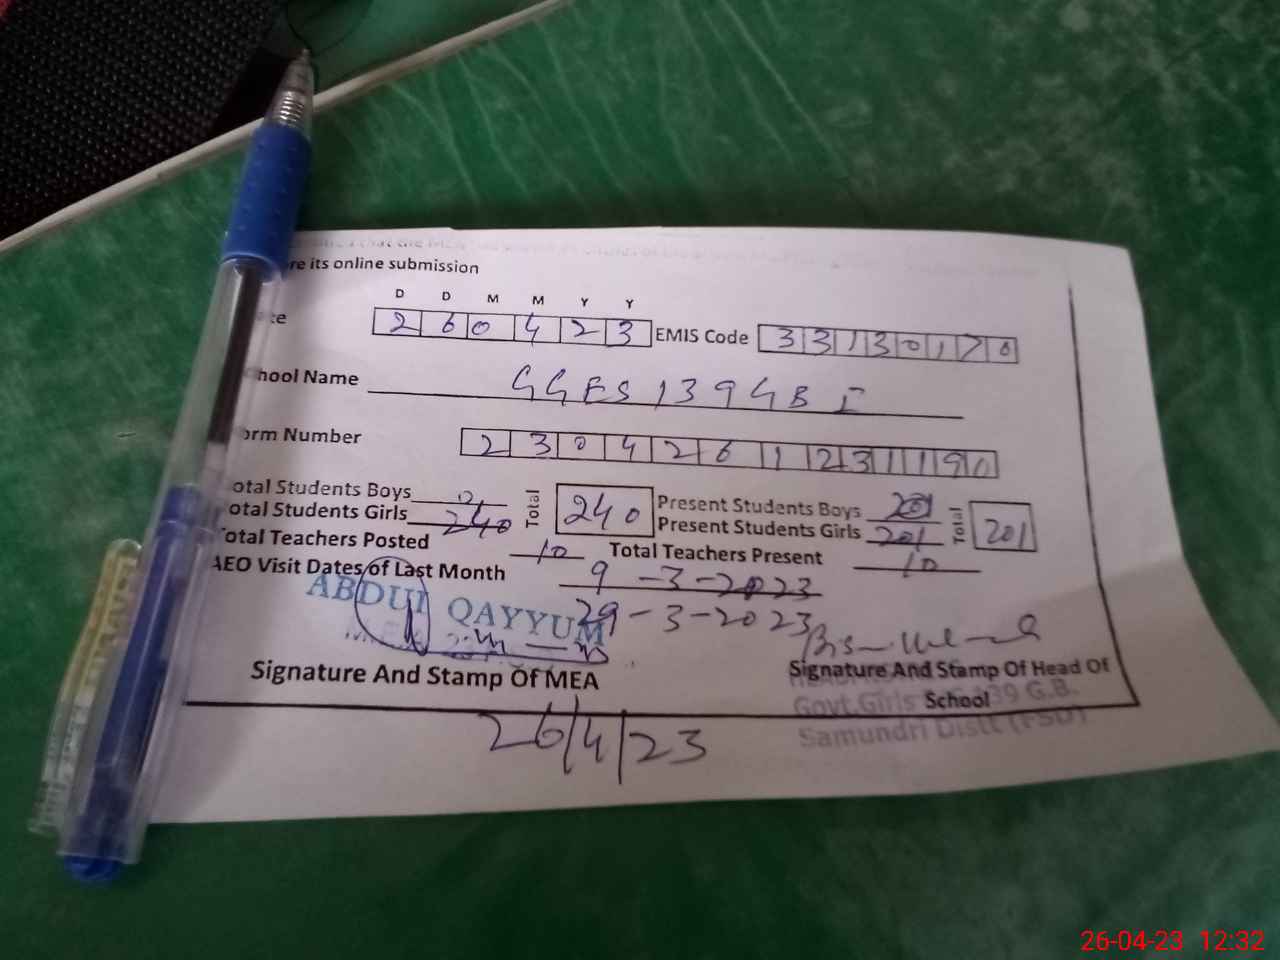 re its online submission
D D M M Y Y
te 2 6 0 4 2 3 EMIS Code 3 3 1 3 0 1 7 0
hool Name GGES 139 GB I
orm Number 2 3 0 4 2 6 1 2 3 1 1 9 0
otal Students Boys 0 Total 240 Present Students Boys Total 201
otal Students Girls 240 Present Students Girls 201
Total Teachers Posted 10 Total Teachers Present 10
AEO Visit Dates of Last Month 9-3-2023
ABDUL QAYYUM 29-3-2023
Signature And Stamp Of MEA Signature And Stamp Of Head Of
School
Govt. Girls 39 G.B.
Samundri Distt (FSD)
26/4/23
26-04-23 12:32